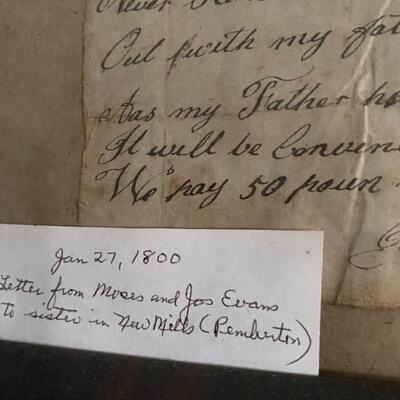 Never
Out with my fat
Has my Father ha
It will be Conven
We pay 50 poun
Jan 27, 1800
Letter from Moses and Jos Evans
to sister in New Mills (Pemberton)